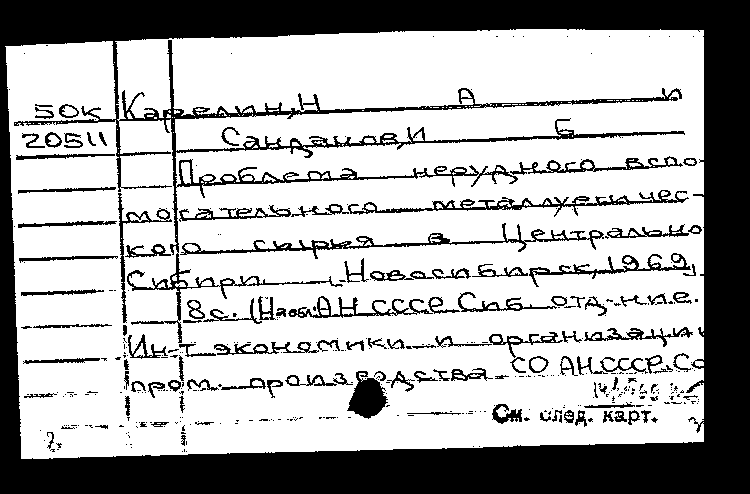 50К Карелин, Н А и
20511 Санданов, И Б
Проблема нерудного вспо-
могательного металлургичес-
кого сырья в Центрально
Сибири. Новосибирск, 1969,
8с. (АН СССР. Сиб. отд-ние.
Ин-т экономики и организации
пром. производства СО АН СССР. Со
См. след. карт.